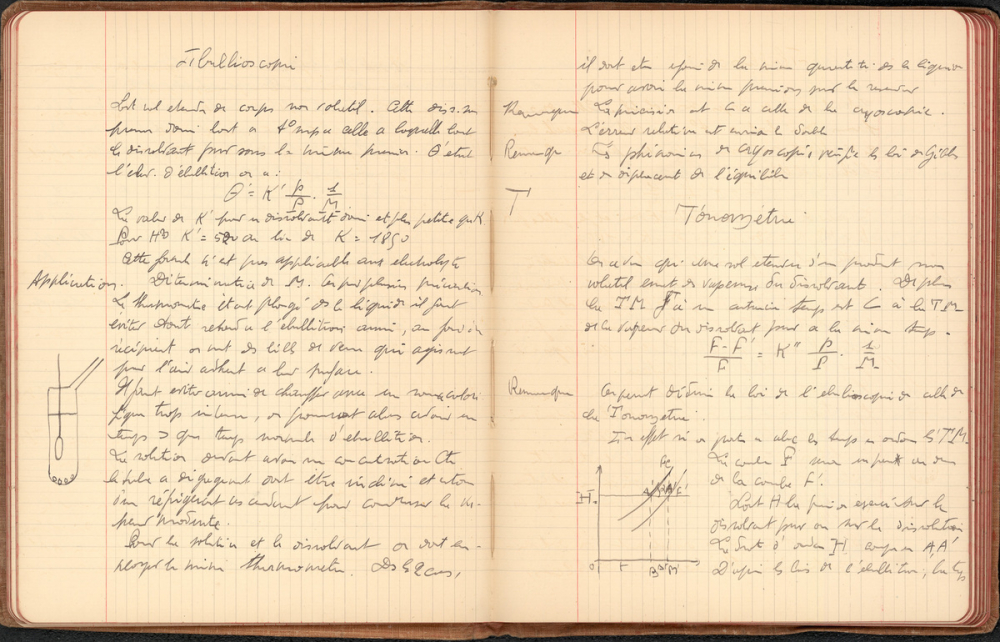 Ebullioscopie
Soit sol etendu de corps non volatil. Cette
donné bout a t° supre a celle a laquelle bout
le dissolvant pur sous la même pression. θ' etant
l'élev. d'ébullition on a :
θ' = K' p/P . 1/M
La valeur de K' pour un dissolvant donné est plus petite que K
Pour H²O K' = 520 au lieu de K = 1850
Cette formule n'est pas applicable aux electrolytes
Applications. Détermination de M. plusieurs précautions
Le thermomètre étant plongé ds le liquide il faut
éviter tout retard a l'ébullition aussi, au fond du
récipient on met des billes de verre qui agissent
par l'air adhérent a leur surface.
Il faut eviter aussi de chauffer avec une source
trop intense, on pourrait alors avoir une
temp > que temp normale d'ebullition.
La solution devant avoir une concentration Cte
le tube a dégagement doit etre incliné et
d'un réfrigérant ascendant pour condenser la va-
peur
Pour la solution et le dissolvant on doit em-
ployer le même thermomètre. Ds les 2 cas,
il doit etre de la même quantité de liquide
pour avoir la même pression sur le
Remarque La précision est = a celle de la cryoscopie.
L'erreur relative est environ le double
Remarque Les phénomènes de cryoscopie vérifie les loi de Gibbs
et de déplacement de l'équilibre
T
Tonométrie
On a vu que une sol etendue d'un produit non
volatil emet des vapeurs du dissolvant. De plus
la T M F' a une certaine temp est < à la T M
de la vapeur du dissolvant pur a la même temp.
F-F'/F = K'' p/P . 1/M
Remarque On peut déduire la loi de l'ebullioscopie de celle de
la Tonométrie.
En effet si on porte en absc les temp en ordon les T.M.
La courbe F sera au dessus
de la courbe F'.
Soit H la pression exercée sur le
dissolvant pur ou sur la dissolution
La Dte d'ordon H coupe en A, A'
D'après les lois de l'ébullition, les temp
H
A A' C'
O t B B' M'